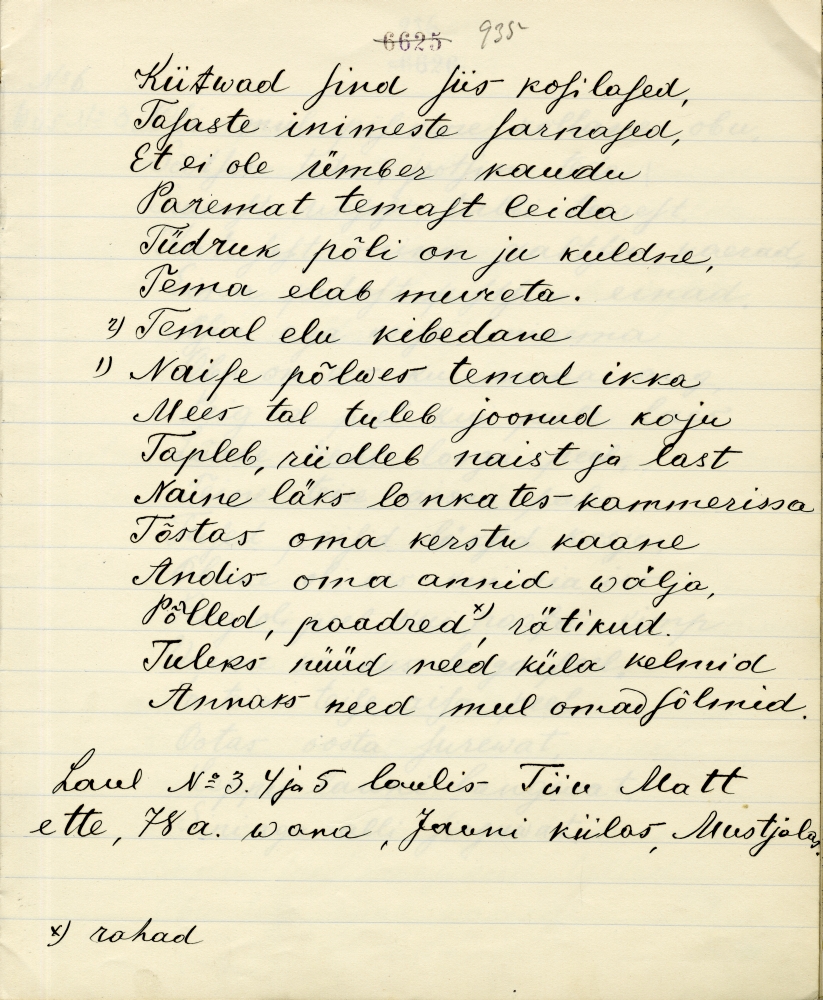 6625 935
Kiitwad sind siis kosilased,
Tasaste inimeste sarnased,
Et ei ole ümber kaudu
Paremat temast leida
Tüdruk põli on ju kuldne,
Tema elab mureta.
2) Temal elu kibedane
1) Naise põlwes temal ikka
Mees tal tuleb joonud koju
Tapleb, riidleb naist ja last
Naine läks lonkates kammerissa
Tõstas oma kerstu kaane
Andis oma annid wälja,
Põlled, paadred x), rätikud.
Tuleks nüüd need küla kelmid
Annaks need mul omad sõlmid.
Laul № 3. 4 ja 5 laulis Tiiu Matt
ette, 78 a. wana, Jauni külas, Mustjalas.
x) rahad